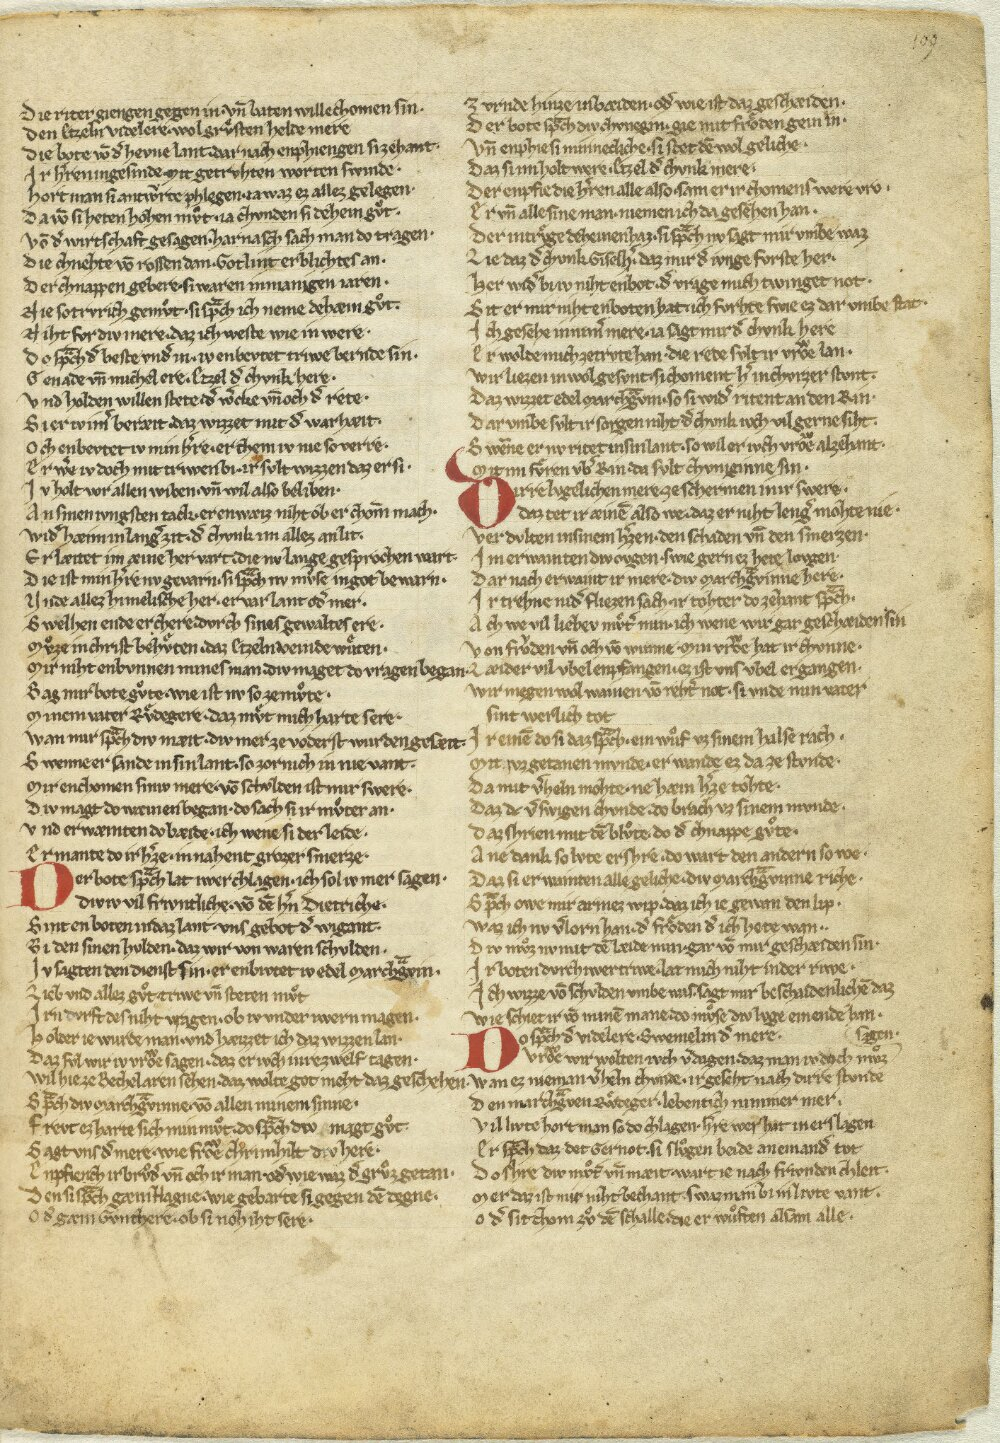 109
Die riter giengen gegen in· vn̄ baten willechomen sin·
Den Etzeln videlere· wol grv̊sten helde mere
Die bote vō d̾ hevne lant· dar nach enphiengen si zehant·
Ir h̾ren ingesinde· mit getrvhten worten swinde·
Hort man si antwrte phlegen· ia waz ez allez gelegen·
Da vō si heten hohen mv̊t· ia chvnden si dehein gv̊t·
Vō d̾ wirtschaft gesagen· harnasch sach man do tragen·
Die chnehte vō rossen dan· Gotlint erblichtes an·
Der chnappen gebere· si waren in manigen iaren·
Nie so trvrich gemv̊t· si sp̄ch ich neme dehæin gv̊t·
Niht for div mere· daz ich weste wie in were·
Do sp̄ch d̾ beste vnd̾ in· iv enbevtet triwe bernde sin·
Genade vn̄ michel ere· Etzel d̾ chvnk here·
Vnd holden willen stete· d̾ wͦcke vn̄ och d̾ rete·
Si ier iv im̾ beræit· daz wizzet mit d̾ warhæit·
Och enbevtet iv min h̾re· er chem iv nie so verre·
Er we iv doch mit triwen bi· ir svlt wizzen daz er si·
Iv holt vor allen wiben· vn̄ wil also beliben·
An sinen ivngsten tack· er enwæiz niht ob er chom̄ mach·
Wid̾ hæim in lang̾ zit· d̾ chvnk im allez an lit·
Er læitet im æine hervart· die nv lange gesprochen wart·
Die ist min h̾re nv gevarn· si sp̄ch nv mv̊se in got bewarn·
Unde allez himelische her· er var lant od̾ mer·
Swelhen ende er chere· dvrch sines gewaltes ere·
Mv̊ze in christ behv̊ten· daz Etzeln veinde wv̊ten·
Mir niht enbvnnen mines man· div maget do vragen began·
Sag mir bote gv̊te· wie ist nv so zemv̊te·
Minem vater Rv̊degere· daz mv̊t mich harte sere·
Wan mir sp̄ch div mæit· div mer ze voderst wurden geseit·
Swenne er sande in sin lant· so zornich in nie vant·
Mir enchomen siniv mere· vō schvlden ist mir swere·
Div magt do weinen began· do sach si ir mv̊ter an·
Vnd erwæinten do bæide· ich wene si der leide·
Er mante do ir h̾ze· in nahent grozer smerze·
Der bote sp̄ch lat iwer chlagen· ich sol iv mer sagen·
Div iv vil frivntliche· vō dē h̾rn Dietriche·
Sint enboten in daz lant· vns gebot d̾ wigant·
Bi den sinen hvlden· daz wir von waren schvlden·
Iv sagten den dienst sin· er enbivtet iv edel march̾gvin·
Lieb vnd allez gv̊t· triwe vn̄ steten mv̊t
Irn dvrft des niht vragen· ob iv vnder iwern magen·
Holder ie wurde man· vnd hæizzet ich daz wizzen lan·
Daz svl wir iv vrͦwe sagen· daz er ivch in rez welf tagen·
Wil hie ze Bechelaren sehen· daz wolte got niht daz geschehen·
Sp̄ch div march̾gvinne· vō allen minem sinne·
Frevt ez harte sich min mv̊t· do sp̄ch div magt gv̊t·
Sagt vns d̾ mere· wie frͦwe chrimhilt div here·
Enpfiench ir brv̊d̾ vn̄ och ir man· od̾ wie waz d̾ grv̊z getan·
Den si sp̄ch gæin Hagne· wie gebarte si gegen dē degne·
Od̾ gæm Gvnthere· ob si noh iht sere·
Zvrnde hinze in bæiden· od̾ wie ist daz gescheiden·
Der bote sp̄ch div chvnegin· gie mit frͦden gein in·
Vn̄ enphie si minnecliche· si stet dē wol geliche·
Daz si im holt were· Etzel d̾ chvnk mere·
Der enpfie die h̾ren alle also· sam er ir chomens were vro·
Er vn̄ alle sine man· niemen ich da gesehen han·
Der in trv̊ge deheinen haz· si sp̄ch nv sagt mir vmbe waz
Lie daz d̾ chvnk Giselh̾· daz mir d̾ ivnge forste her·
Her wid̾ biv niht enbot· d̾ vrage mich twinget not·
Sit er mir niht enboten hat· ich forhte swie ez dar vmbe stat·
Ich gesehe in nim̾ mere· ia sagt mir d̾ chvnk here
Er wolde mich ze trvte han· die rede svlt ir vrͦwe lan·
Wir liezen in wol gesvnt· si choment h̾ in chvrzer stvnt·
Daz wizzet edel march̾gvin· so si wid̾ ritent an den Rin·
Dar vmbe svlt ir sorgen niht d̾ chvnk ivch vil gerne siht·
Swēne er nv ritet in sin lant· so wil er ivch vrͦwe alzehant·
Mit im fv̊ren vb̾ Rin· da svlt chvniginne sin·
Dirre lvgelichen mere· ze schermen in ir swere·
daz tet ir æinē also we· daz er niht leng̾ mohte nie·
Verdvlten in sinem h̾zen· den schaden vn̄ den smerzen·
Im erwainten div ovgen· swie gern ez hete lovgen·
Dar nach erwaint ir mere· div march̾gvinne here·
Ir trehne nid̾ fliezen sach· ir tohter do zehant sp̄ch·
Ach we vil liebev mv̊t̾ min· ich wene wir gar gescheiden sin
Von frͦden vn̄ och vō wunne· min vrͦwe hat ir chvnne·
Læider vil vbel enpfangen· ez ist vns vbel ergangen·
Wir megen wol wainen vō reht̾ not· si vnde min vater
sint werlich tot
Ir einē do si daz sp̄ch· ein wv̊f vz sinem halse rach·
Mit vzgetanen mvnde· er wande ez da ze stvnde·
Da mit v̾heln mohte· ne hæin h̾ze tohte·
Daz dc v̾swigen chvnde· do brach vz sinem mvnde·
Daz shrien mit dē blv̊te· do d̾ chnappe gv̊te·
Ane dank so lvte ershre· do wart den andern so we·
Daz si erwainten alle geliche· div march̾gvinne riche·
Sp̄ch owe mir armez wip· daz ich ie gewan den lip·
Waz ich nv v̾lorn han· d̾ frͦden d̾ ich hete wan·
Div mv̊z nv mit dē læide min· gar vō mir geschæiden sin·
Ir boten dvrch iwer triwe· lat mich niht in der riwe·
Ich wizze vō schvlden vmbe was· sagt mir beschaidenlichē daz
Wie schiet ir vō minē mane· do mv̊se div lvge ein ende han·
Do sp̄ch d̾ videlere· Swemelin d̾ mere· sagen·
Vrͦwe wir wolten ivch v̾dagen· daz man iv doch mv̊z
Wan ez nieman v̾heln chvnde· ir geseht nach dirre stvnde
Den march̾gven Rv̊deger· lebentich nimmer mer·
Vil livte hort man sa do chlagen· h̾re wer hat in erslagen
Er sp̄ch daz det Gernot· si slv̊gen beide an einand̾ tot
Do shre div mv̊t̾ vn̄ mæit· wart ie nach frivnden chleit·
Mer daz ist mir niht bechant· swaz man bi in livte vant·
Od̾ sit chom zv̊ dē schalle· die er wv̊ften alsam alle·